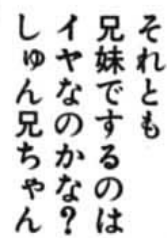 それとも
兄妹でするのは
イヤなのかな?
しゅん兄ちゃん